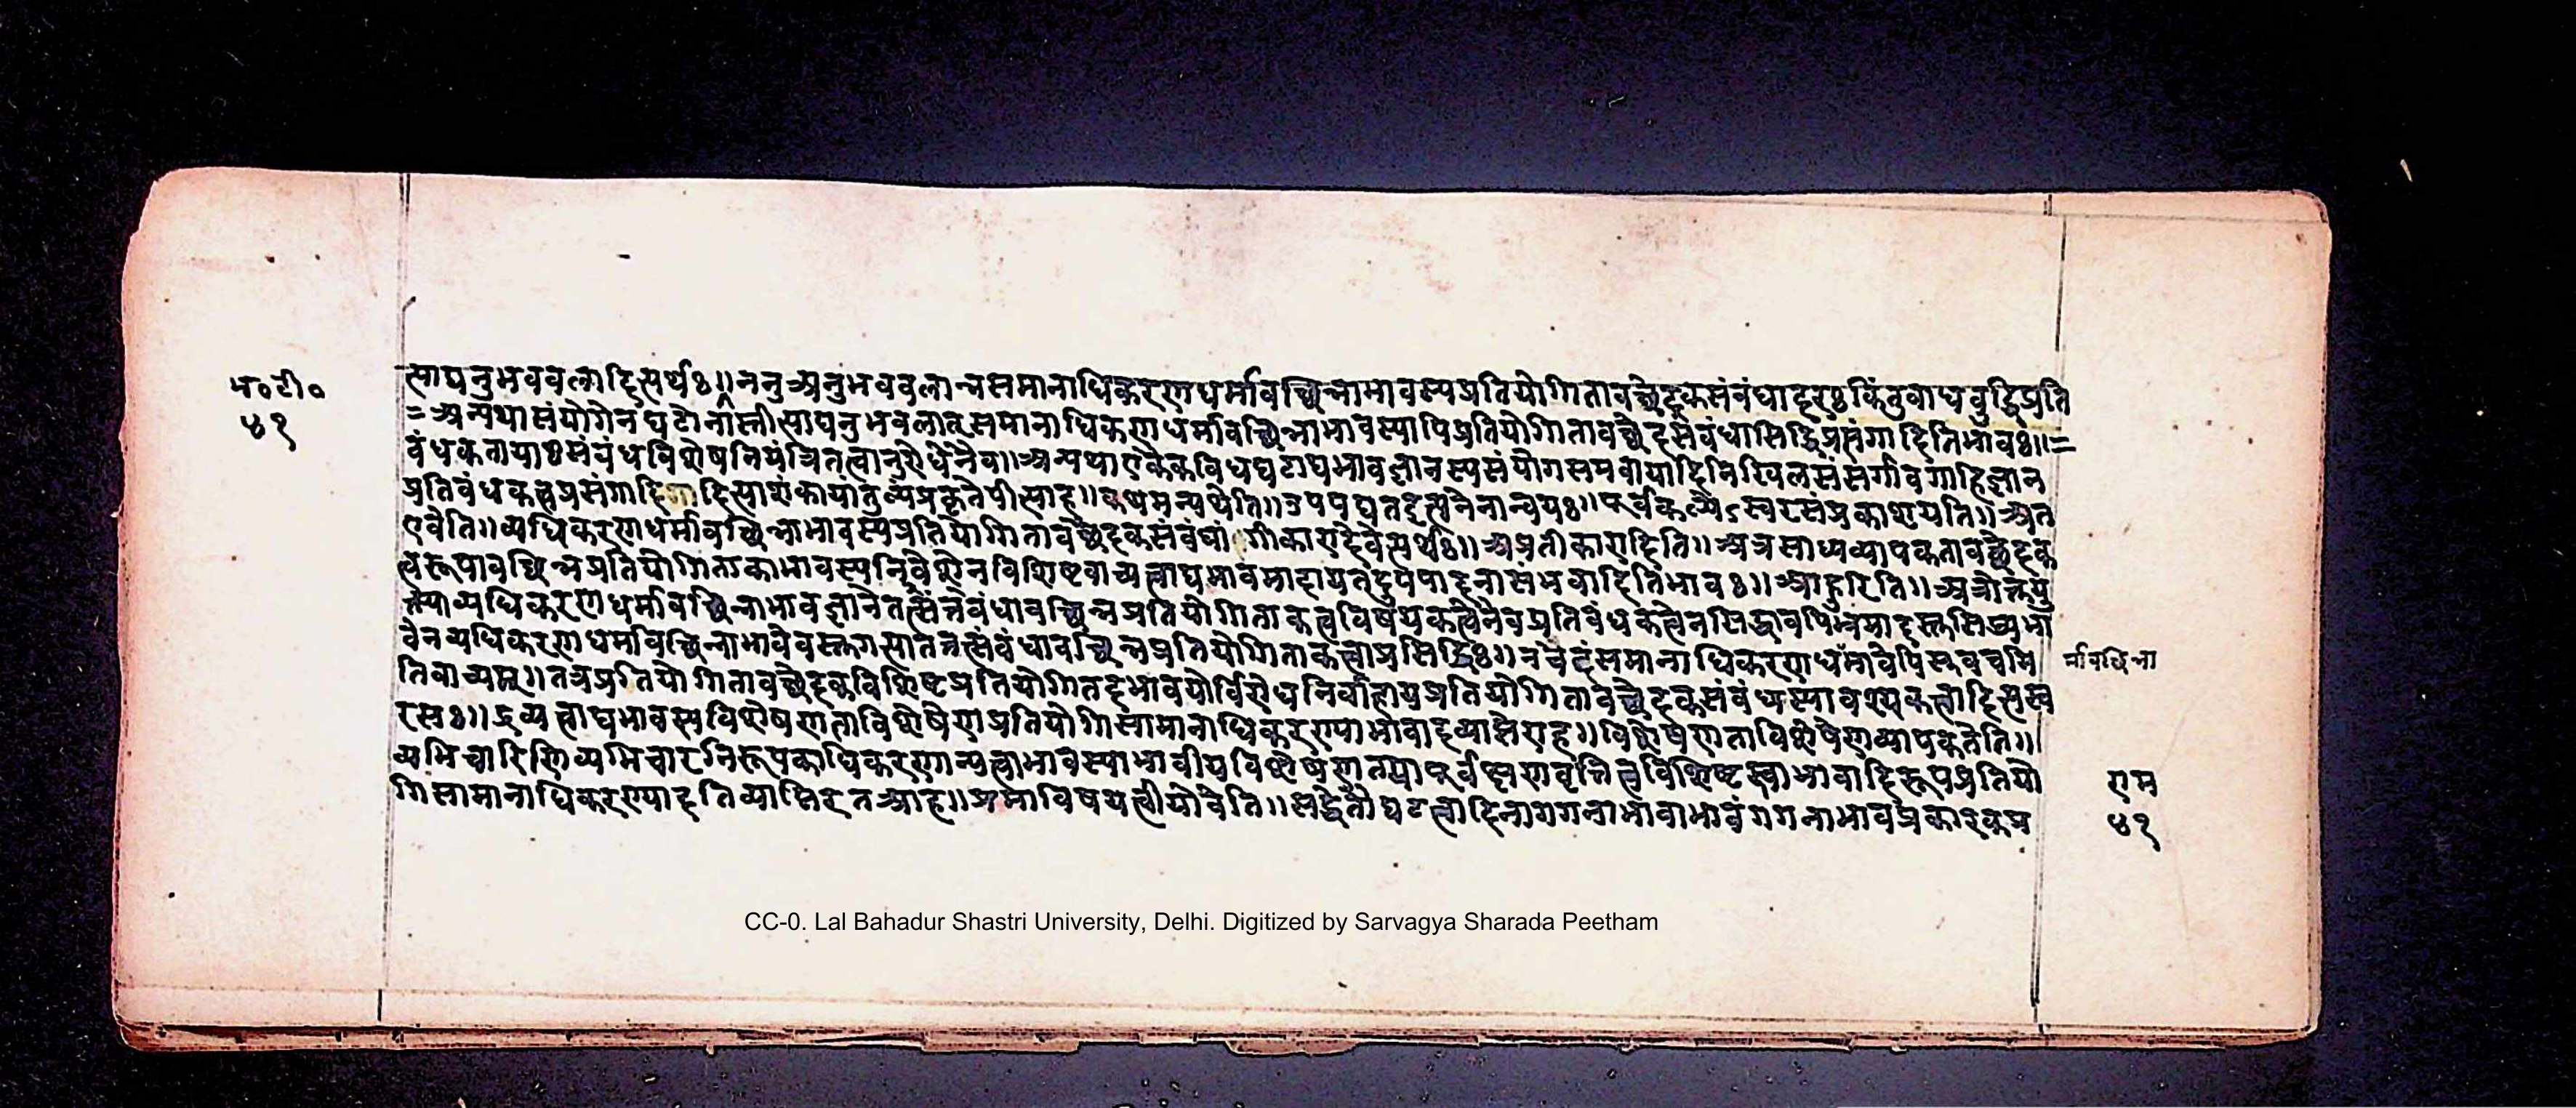 भ०टी०
४१
त्साद्यनुभवबलादित्यर्थः॥ननुअनुभवबलान्नसमानाधिकरणधर्मावच्छिन्नाभावस्यप्रतियोगितावच्छेदकसंबंधादरः किंतुबाधबुद्धिप्रति
=अन्यथासंयोगेनघटोनास्तीत्साद्यनुभवबलात्समानाधिकरणधर्मावच्छिन्नाभावस्यापिप्रतियोगितावच्छेदसंबंधासिद्धिप्रसंगादितिभावः॥=
बंधकतायाः संबंधविशेषनियंत्रितत्वानुरोधेनैव॥अन्यथाएकैकविधघटाद्यभावज्ञानस्यसंयोगसमवायादिनिखिलसंसर्गावगाहिज्ञान
प्रतिबंधकत्वप्रसंगादित्साशंकायांतुल्यंप्रकृतेपीत्साह॥कथमन्यथेति॥उपपद्यतइत्यनेनान्वयः॥पूर्वकल्पेऽस्वरसंप्रकाशयति॥अत
एवेति॥व्यधिकरणधर्मावच्छिन्नाभावस्यप्रतियोगितावच्छेदकसंबंधांगीकारादेवेत्यर्थः॥अप्रतीकारादिति॥अत्रसाध्यव्यापकतावच्छेदक
त्वरूपावच्छिन्नप्रतियोगिताकाभावस्यनिवेशेनविशिष्टवाच्यत्वाद्यभावमादायतदुपपादनासंभवादितिभावः॥आहुरिति॥अत्रोक्तयु
क्त्याव्यधिकरणधर्मावच्छिन्नाभावज्ञानेतत्संबंधावच्छिन्नप्रतियोगिताकत्वविषयकत्वेनैवप्रतिबंधकत्वेनसिद्धावपि
वेनव्यधिकरणधर्मावच्छिन्नाभावेवस्तुगत्सातत्तत्संबंधावच्छिन्नप्रतियोगिताकत्वाप्रसिद्धिः॥नचेदंसमानाधिकरणधर्माव
र्मावच्छिन्ना
तिवाच्यम्॥तत्रप्रतियोगितावच्छेदकविशिष्टप्रतियोगितदभावयोर्विरोधनिर्वाहायप्रतियोगितावच्छेदकसंबंधस्यावश्यकत्वादित्यस्व
रसः॥द्रव्यत्वाद्यभावस्यविशेषणताविशेषेणप्रतियोगिसामानाधिकरण्याभावादव्याप्तेराह॥विशेषणताविशेषेणव्यापकतेति॥
व्यभिचारिणिव्यभिचारनिरूपकाधिकरणान्यत्वाभावस्याभावीयविशेषणतयापूर्वक्षणवृत्तित्वविशिष्टस्वाभावादिरूपप्रतियो
गिसामानाधिकरण्यादतिव्याप्तिरतआह॥प्रमाविषयत्वीयोवेति॥सद्धेतौघटत्वादिनागगनाभावाभावंगगनाभावप्रकारकप्र
राम
४१
CC-0. Lal Bahadur Shastri University, Delhi. Digitized by Sarvagya Sharada Peetham